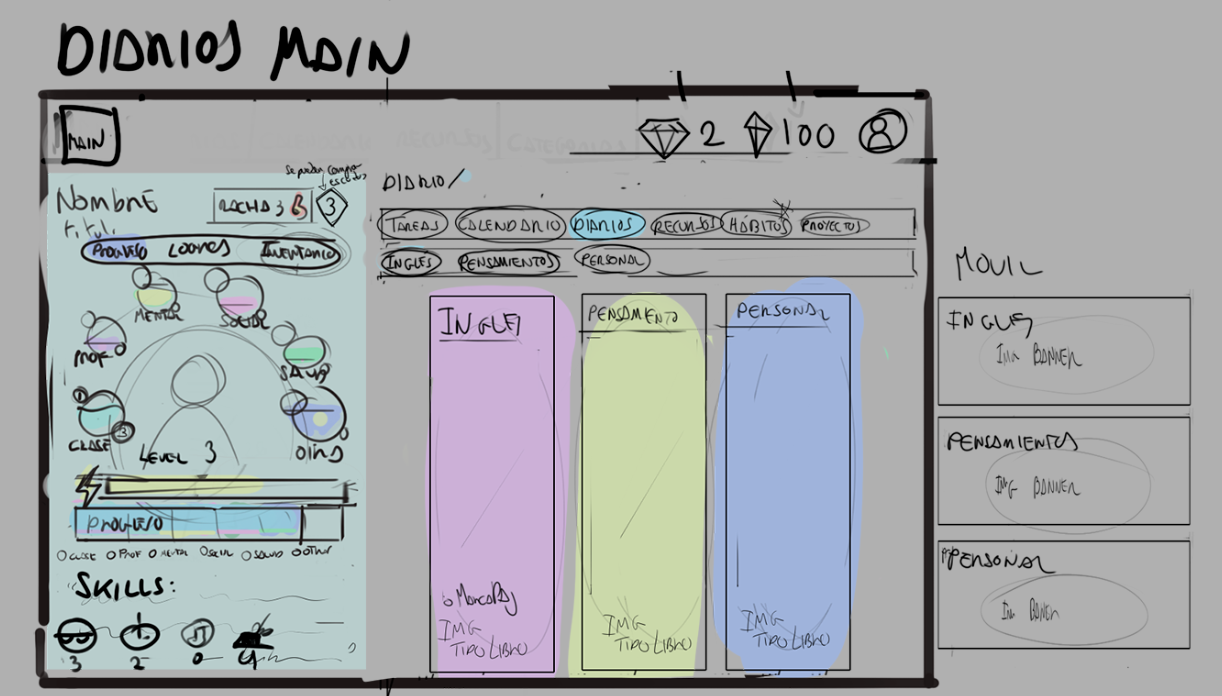 DIARIOS MAIN
MAIN
2
100
Nombre
RACHA 3
3
Se pueden comprar escudos
PROGRESO LOGROS INVENTARIO
MENTAL
SOCIAL
PROF
SALUD
CLASE
3
LEVEL 3
PROGRESO
CLASE PROF MENTAL SOCIAL SALUD OTHER
SKILLS:
3 2 0 4
DIARIO/
TAREAS CALENDARIO DIARIOS RECURSOS HÁBITOS PROYECTOS
INGLES PENSAMIENTOS PERSONAL
INGLES
IMG
TIPO LIBRO
PENSAMIENTO
IMG
TIPO LIBRO
PERSONAL
IMG
TIPO LIBRO
MOVIL
INGLES
IMG BANNER
PENSAMIENTOS
IMG BANNER
PERSONAL
IMG BANNER